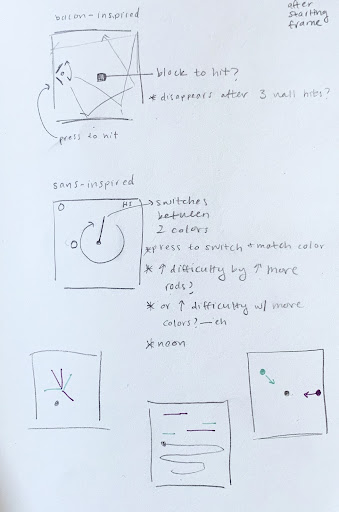 after
starting
frame
bacon-inspired
block to hit?
* disappears after 3 wall hits?
press to hit
sans-inspired
O HS
switches
between
2 colors
* press to switch + match color
* ↑ difficulty by ↑ more
rods?
* or ↑ difficulty w/ more
colors? — eh
* neon